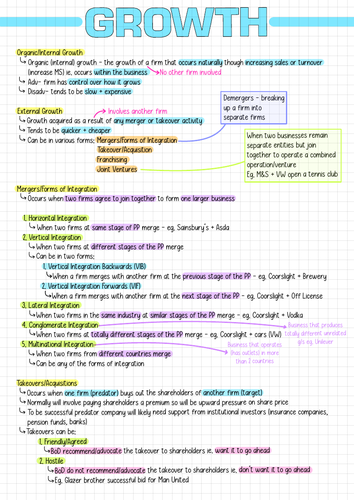 GROWTH
Organic/Internal Growth
Organic (internal) growth - the growth of a firm that occurs naturally though increasing sales or turnover
(increase MS) ie, occurs within the business
No other firm involved
Adv- firm has control over how it grows
Disadv- tends to be slow + expensive
External Growth
Involves another firm
Growth acquired as a result of any merger or takeover activity
Tends to be quicker + cheaper
Can be in various forms; Mergers/forms of Integration
Takeover/Acquisition
Franchising
Joint Ventures
Demergers - breaking
up a firm into
separate firms
When two businesses remain
separate entities but join
together to operate a combined
operation/venture
Eg, M&S + VW open a tennis club
Mergers/forms of Integration
Occurs when two firms agree to join together to form one larger business
1. Horizontal Integration
When two firms at same stage of PP merge - eg, Sansbury's + Asda
2. Vertical Integration
When two firms at different stages of the PP merge
Can be in two forms;
1. Vertical Integration Backwards (VIB)
When a firm merges with another firm at the previous stage of the PP - eg, Coorslight + Brewery
2. Vertical Integration Forwards (VIF)
When a firm merges with another firm at the next stage of the PP - eg, Coorslight + Off License
3. Lateral Integration
When two firms in the same industry at similar stages of the PP merge - eg, Coorslight + Vodka
4. Conglomerate Integration
When two firms at totally different stages of the PP merge - eg, Coorslight + cars (VW)
Business that produces
totally different unrelated
g/s eg. Unilever
5. Multinational Integration
When two firms from different countries merge
Can be any of the forms of integration
Business that operates
(has outlets) in more
than 2 countries
Takeovers/Acquistions
Occurs when one firm (predator) buys out the shareholders of another firm (target)
Normally will involve paying shareholders a premium so will be upward pressure on share price
To be successful predator company will likely need support from institutional investors (insurance companies,
pension funds, banks)
Takeovers can be;
1. Friendly/Agreed
BoD recommend/advocate the takeover to shareholders ie, want it to go ahead
2. Hostile
BoD do not recommend/advocate the takeover to shareholders ie, don't want it to go ahead
Eg, Glazer brother successful bid for Man United